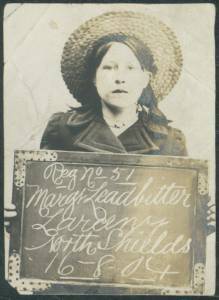 Reg No 51
Margt Leadbitter
Larceny
North Shields
16-8-04